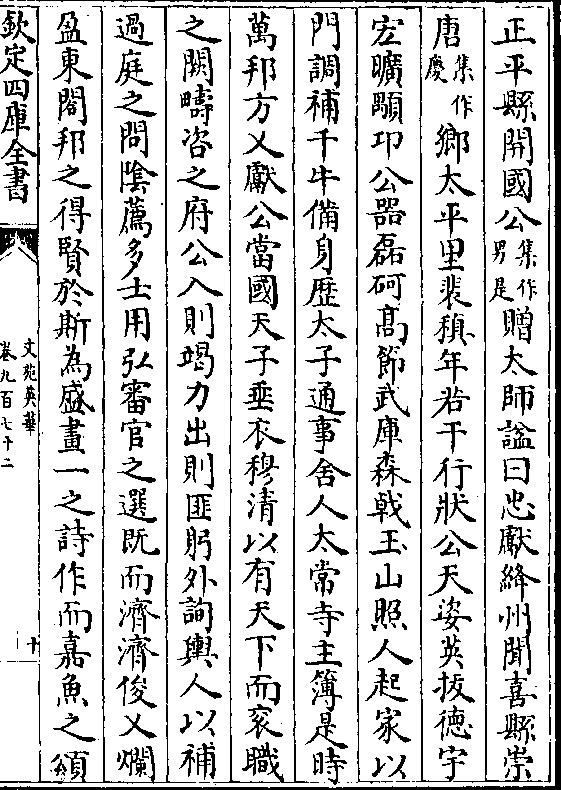 正平縣開國公集作男是贈太師謚曰忠獻絳州聞喜縣崇
唐集作慶鄉太平里裴稹年若干行狀公天姿英拔德宇
宏曠顒卭公器磊砢髙節武庫森㦸玉山照人起家以
門調補千牛備身歴太子通事舍人太常寺主簿是時
萬邦方乂獻公當國天子垂衣穆清以有天下而衮職
之闕疇咨之府公入則竭力出則匪躬外詢輿人以補
過庭之問隂薦多士用弘審官之選既而濟濟俊乂爛
盈東閣邦之得賢於斯為盛畫一之詩作而嘉魚之頌
欽定四庫全書
文苑英華
卷九百七十二
十